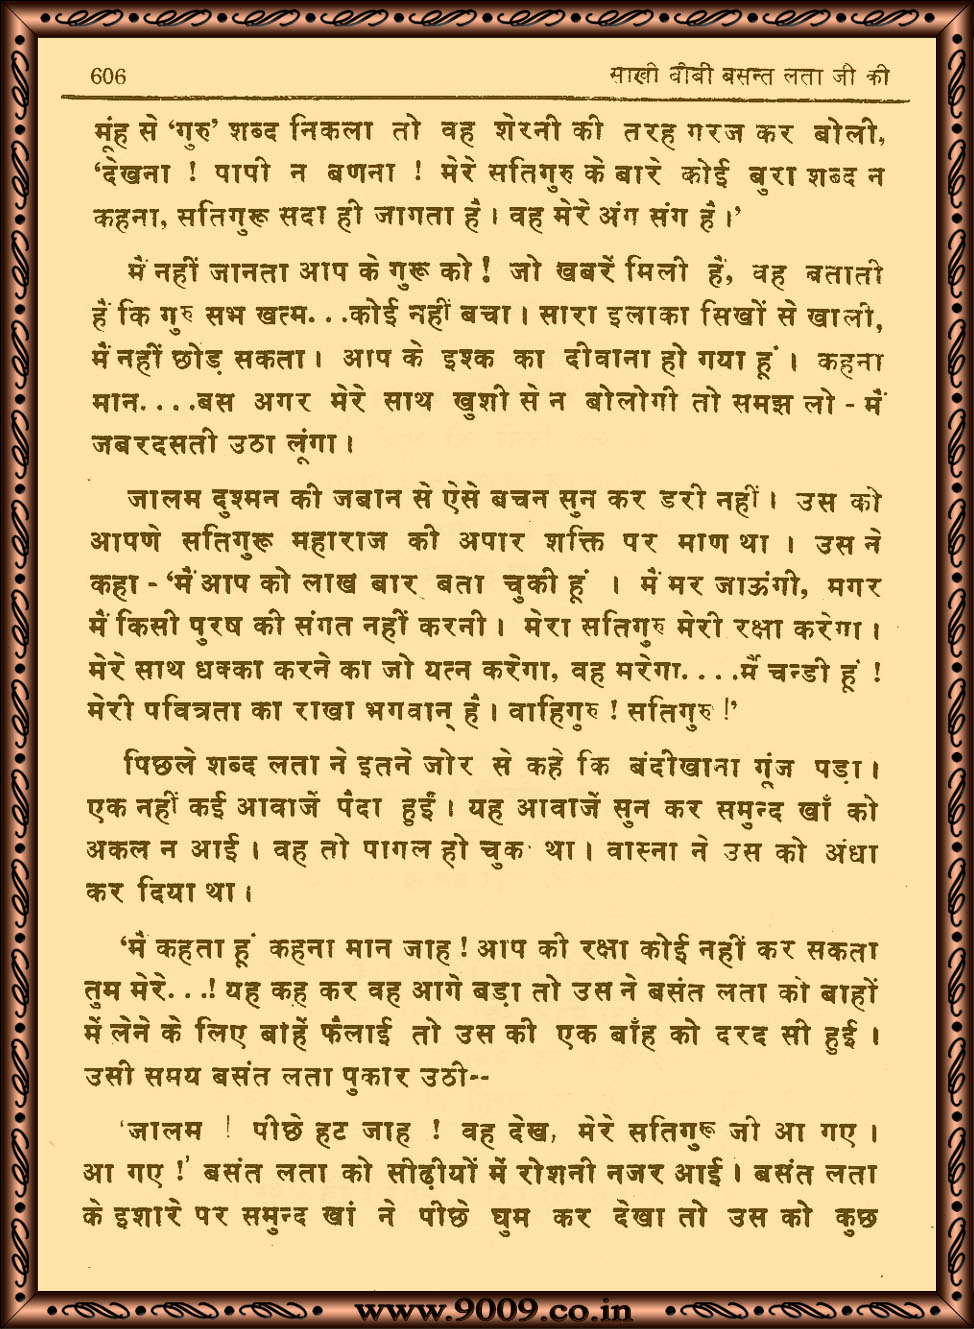 606 साखी बीबी बसन्त लता जी की
मूंह से ‘गुरु’ शब्द निकला तो वह शेरनी की तरह गरज कर बोली,
‘देखना ! पापी न बणना ! मेरे सतिगुरु के बारे कोई बुरा शब्द न
कहना, सतिगुरू सदा ही जागता है । वह मेरे अंग संग है ।’
मैं नहीं जानता आप के गुरू को ! जो खबरें मिली हैं, वह बताती
हैं कि गुरु सभ खत्म. . .कोई नहीं बचा । सारा इलाका सिखों से खाली,
मैं नहीं छोड़ सकता । आप के इश्क का दीवाना हो गया हूं । कहना
मान. . . .बस अगर मेरे साथ खुशी से न बोलोगी तो समझ लो - मैं
जबरदसती उठा लूंगा ।
जालम दुश्मन की जबान से ऐसे बचन सुन कर डरी नहीं । उस को
आपणे सतिगुरू महाराज की अपार शक्ति पर माण था । उस ने
कहा - ‘मैं आप को लाख बार बता चुकी हूं । मैं मर जाऊंगी, मगर
मैं किसी पुरष की संगत नहीं करनी । मेरा सतिगुरु मेरी रक्षा करेगा ।
मेरे साथ धक्का करने का जो यत्न करेगा, वह मरेगा. . . .मैं चन्डी हूं !
मेरी पवित्रता का राखा भगवान् है । वाहिगुरु ! सतिगुरु !’
पिछले शब्द लता ने इतने जोर से कहे कि बंदीखाना गूंज पड़ा ।
एक नहीं कई आवाजें पैदा हुईं । यह आवाजें सुन कर समुन्द खाँ को
अकल न आई । वह तो पागल हो चुका था । वास्ना ने उस को अंधा
कर दिया था ।
‘मैं कहता हूं कहना मान जाह ! आप की रक्षा कोई नहीं कर सकता
तुम मेरे. . .! यह कह कर वह आगे बड़ा तो उस ने बसंत लता को बाहों
में लेने के लिए बांहें फैलाई तो उस की एक बाँह को दरद सी हुई ।
उसी समय बसंत लता पुकार उठी--
‘जालम ! पीछे हट जाह ! वह देख, मेरे सतिगुरू जी आ गए ।
आ गए !’ बसंत लता को सीढ़ीयों में रोशनी नजर आई । बसंत लता
के इशारे पर समुन्द खां ने पीछे घुम कर देखा तो उस को कुछ
www.9009.co.in